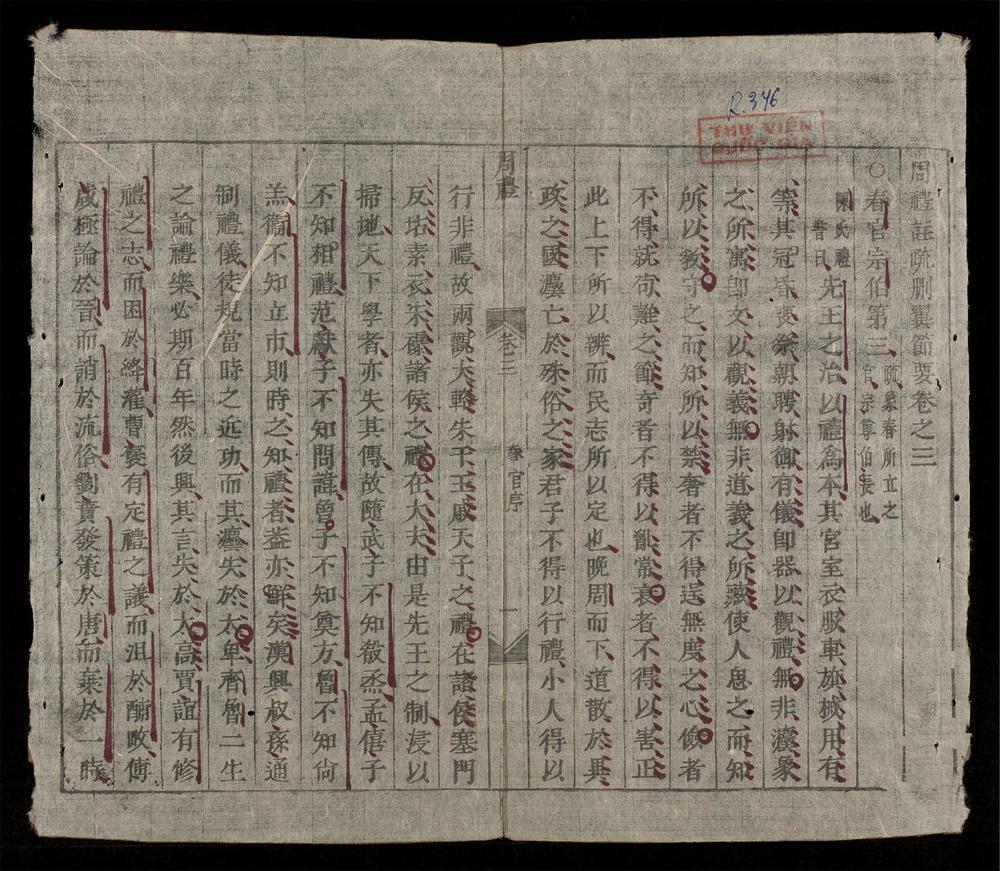 R.346
周禮註疏刪翼節要卷之三
○春官宗伯第三疏象春所立之官宗尊伯長也
陳氏禮書曰先王之治以禮為本其宮室衣服車旗械用有
等其冠昏喪祭朝聘射御有儀即器以觀禮無非灋象
之所寓即文以觀義無非道義之所藏使人思之而知
所以敎守之而知所以禁奢者不得逞無度之心儉者
不得就苟難之節奇者不得以亂常衰者不得以害正
此上下所以辨而民志所以定也晚周而下道散於異
政之國灋亡於殊俗之家君子不得以行禮小人得以
周禮
卷三
春官序
一
行非禮故兩觀大輅朱干玉戚天子之禮在諸侯塞門
反坫素衣朱襮諸侯之禮在大夫由是先王之制浸以
掃地天下學者亦失其傳故隨武子不知殽烝孟僖子
不知相禮范獻子不知問諱曾子不知奠方曾不知尙
羔衞不知立市則時之知禮者葢亦鮮矣漢興叔孫通
制禮儀徒規當時之近功而其灋失於太卑齊魯二生
之論禮樂必期百年然後興其言失於太高賈誼有修
禮之志而困於絳灌曹襃有定禮之議而沮於酺敏傅
咸極論於晉而誚於流俗劉蕡發策於唐而棄於一時